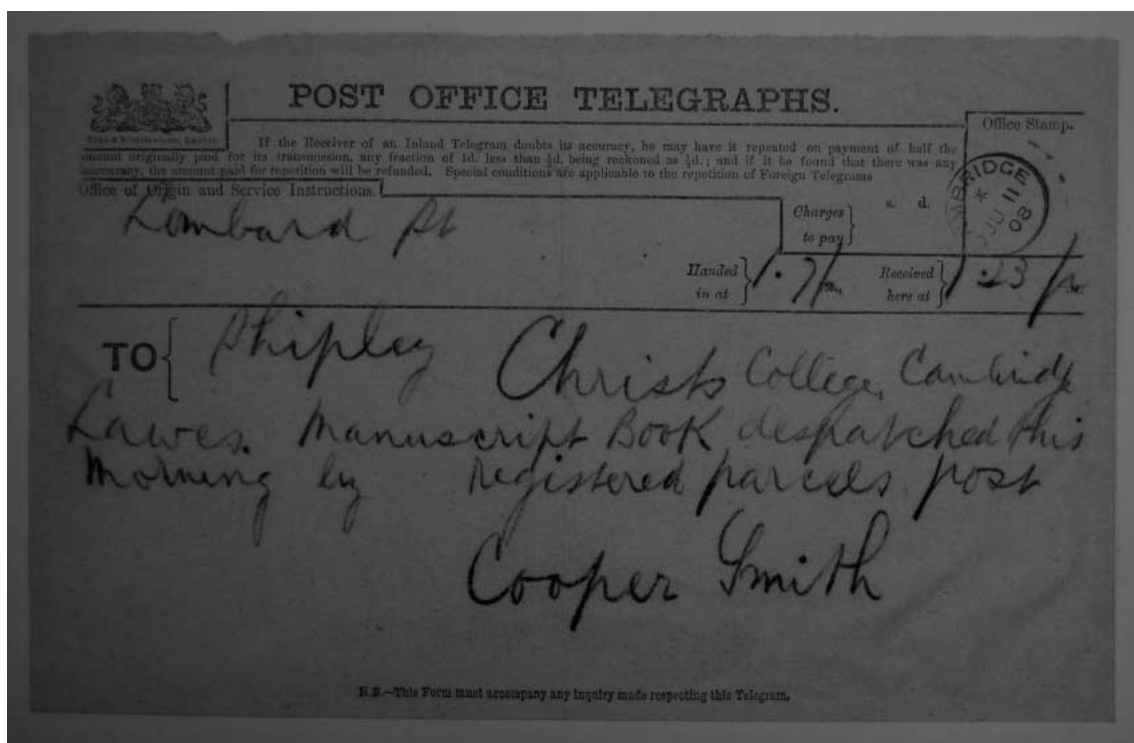 POST OFFICE TELEGRAPHS.
Office Stamp.
If the Receiver of an Inland Telegram doubts its accuracy, he may have it repeated on payment of half the
amount originally paid for its transmission, any fraction of 1d. less than ½d. being reckoned as ½d.; and if it be found that there was any
inaccuracy, the amount paid for repetition will be refunded. Special conditions are applicable to the repetition of Foreign Telegrams
Office of Origin and Service Instructions.
Lombard St
Charges to pay
s. d.
CAMBRIDGE
JU 11
08
Handed in at 1.7 p.m.
Received here at 1.23 p.m.
TO Shipley Christs College, Cambridge
Lawes. Manuscript Book despatched this
morning by registered parcels post
Cooper Smith
N.B.—This Form must accompany any inquiry made respecting this Telegram.